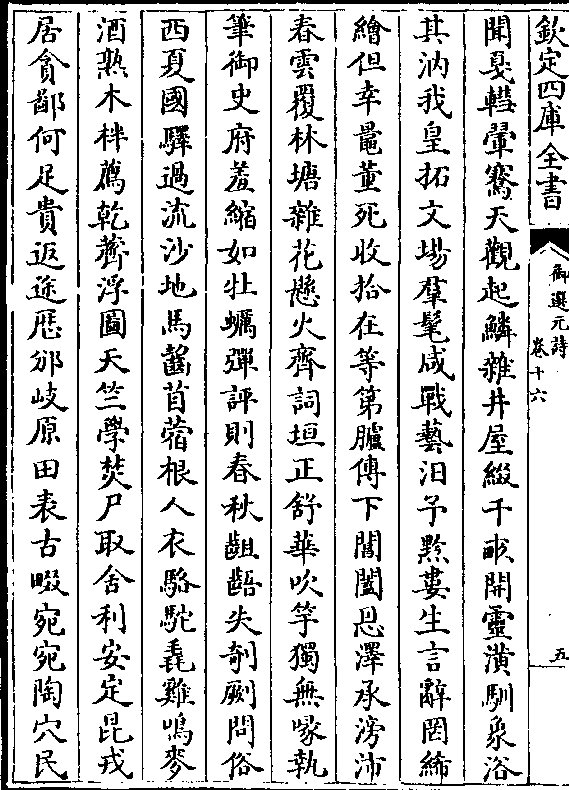 欽定四庫全書
御選元詩
卷十六
五
聞戛轇翬騫天觀起鱗雜井屋綴千畞開靈潢馴象浴
其汭我皇拓文場羣髦咸戰藝汨予黔婁生言辭罔締
繪但幸鼂董死收拾在等第臚傳下閶闔恩澤承滂沛
春雲覆林塘雜花懸火齊詞垣正舒華吹竽獨無喙執
筆御史府羞縮如牡蠣彈評則春秋齟齬失剞劂問俗
西夏國驛過流沙地馬齧苜蓿根人衣駱駝毳雞鳴麥
酒熟木柈薦乾薺浮圖天竺學焚尸取舍利安定昆戎
居貪鄙何足貴返途歷邠岐原田表古畷宛宛陶穴民